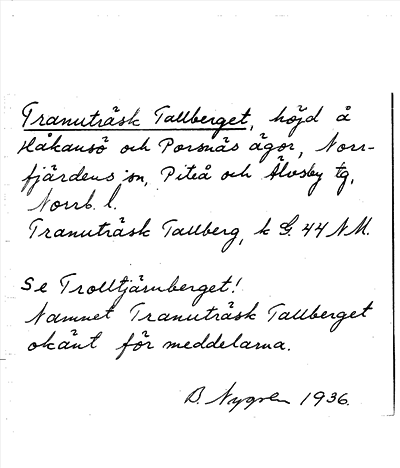 Tranuträsk Tallberget, höjd å
Håkansö och Porsnäs ägor, Norr-
fjärdens sn, Piteå och Älvsby tg,
Norrb. l.
Tranuträsk Tallberg, k G. 44 NM.
Se Trolltjärnberget!
Namnet Tranuträsk Tallberget
okänt för meddelarna.
B. Nygren 1936.